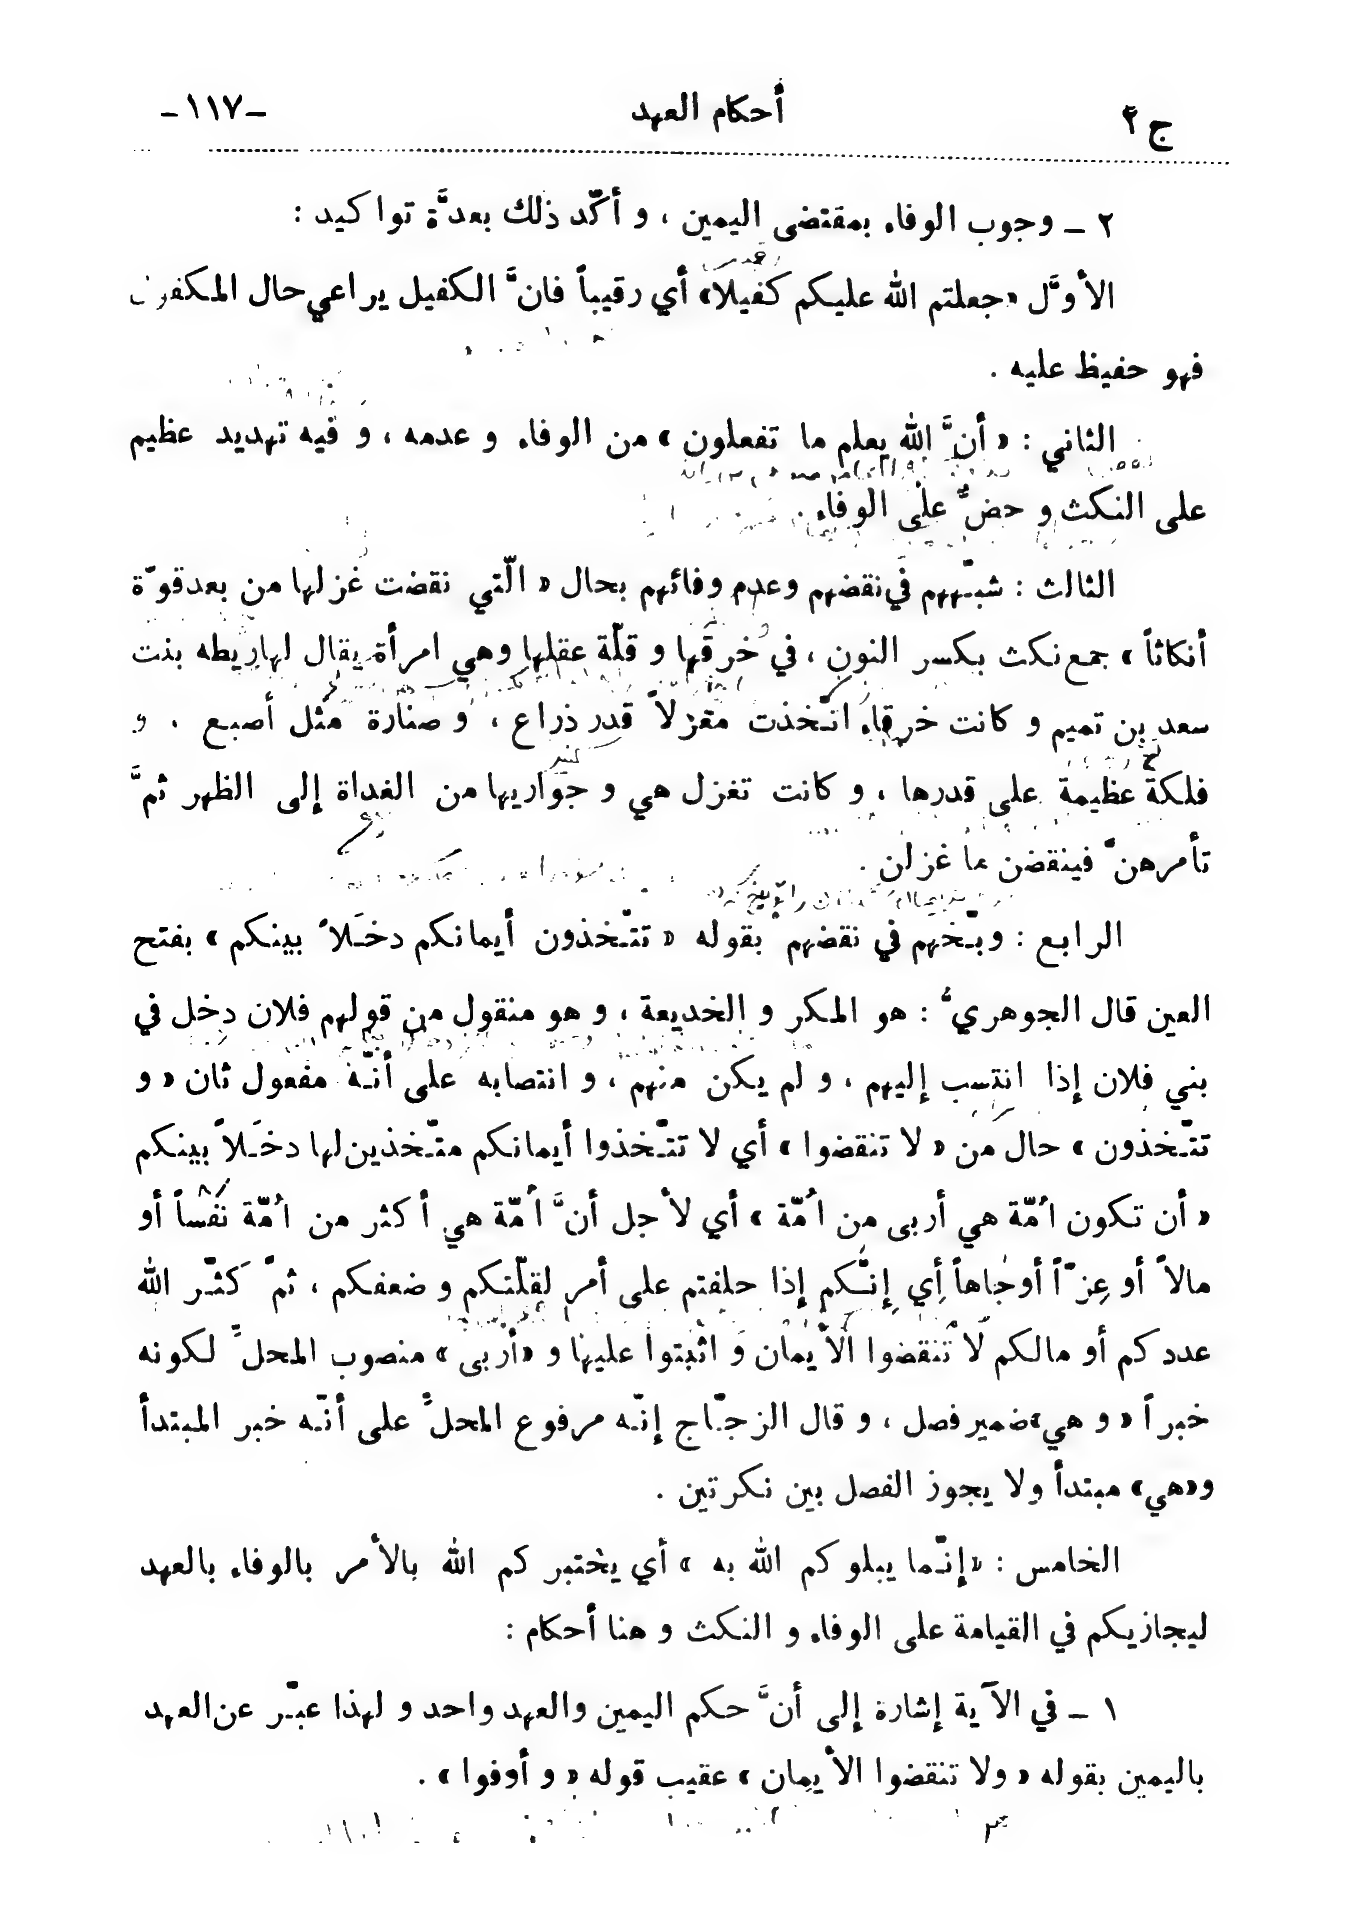 ج٢ أحكام العهد -١١٧-
٢ ـ وجوب الوفاء بمقتضى اليمين ، و أكّد ذلك بعدَّة تواكيد :
الأوَّل «جعلتم الله عليكم كفيلا» أي رقيباً فانَّ الكفيل يراعي حال المكفول
فهو حفيظ عليه .
الثاني : « أنَّ الله يعلم ما تفعلون » من الوفاء و عدمه ، و فيه تهديد عظيم
على النكث و حضٌّ على الوفاء .
الثالث : شبّههم في نقضهم وعدم وفائهم بحال « الّتي نقضت غزلها من بعد قوّة
أنكاثاً » جمع نكث بكسر النون ، في خرقها و قلّة عقلها وهي امرأة يقال لها ريطه بنت
سعد بن تميم و كانت خرقاء اتّخذت مغزلاً قدر ذراع ، و صنارة مثل أصبع ، و
فلكة عظيمة على قدرها ، و كانت تغزل هي و جواريها من الغداة إلى الظهر ثمَّ
تأمرهنّ فينقضن ما غزلن .
الرابع : وبّخهم في نقضهم بقوله « تتّخذون أيمانكم دخَلاً بينكم » بفتح
العين قال الجوهريُّ : هو المكر و الخديعة ، و هو منقول من قولهم فلان دخل في
بني فلان إذا انتسب إليهم ، و لم يكن منهم ، و انتصابه على أنّه مفعول ثان « و
تتّخذون » حال من « لا تنقضوا » أي لا تتّخذوا أيمانكم متّخذين لها دخَلاً بينكم
« أن تكون اُمّة هي أربى من اُمّة » أي لأجل أنَّ اُمّة هي أكثر من اُمّة نفساً أو
مالاً أو عِزّاً أوجاهاً أي إنّكم إذا حلفتم على أمر لقلّتكم و ضعفكم ، ثمّ كثّر الله
عددكم أو مالكم لا تنقضوا الأيمان و اثبتوا عليها و «أربى» منصوب المحلِّ لكونه
خبراً « و هي» ضمير فصل ، و قال الزجّاج إنّه مرفوع المحلِّ على أنّه خبر المبتدأ
و«هي» مبتدأ ولا يجوز الفصل بين نكرتين .
الخامس : «إنّما يبلوكم الله به » أي يختبركم الله بالأمر بالوفاء بالعهد
ليجازيكم في القيامة على الوفاء و النكث و هنا أحكام :
١ ـ في الآية إشارة إلى أنَّ حكم اليمين والعهد واحد و لهذا عبّر عن العهد
باليمين بقوله « ولا تنقضوا الأيمان » عقيب قوله « و أوفوا » .